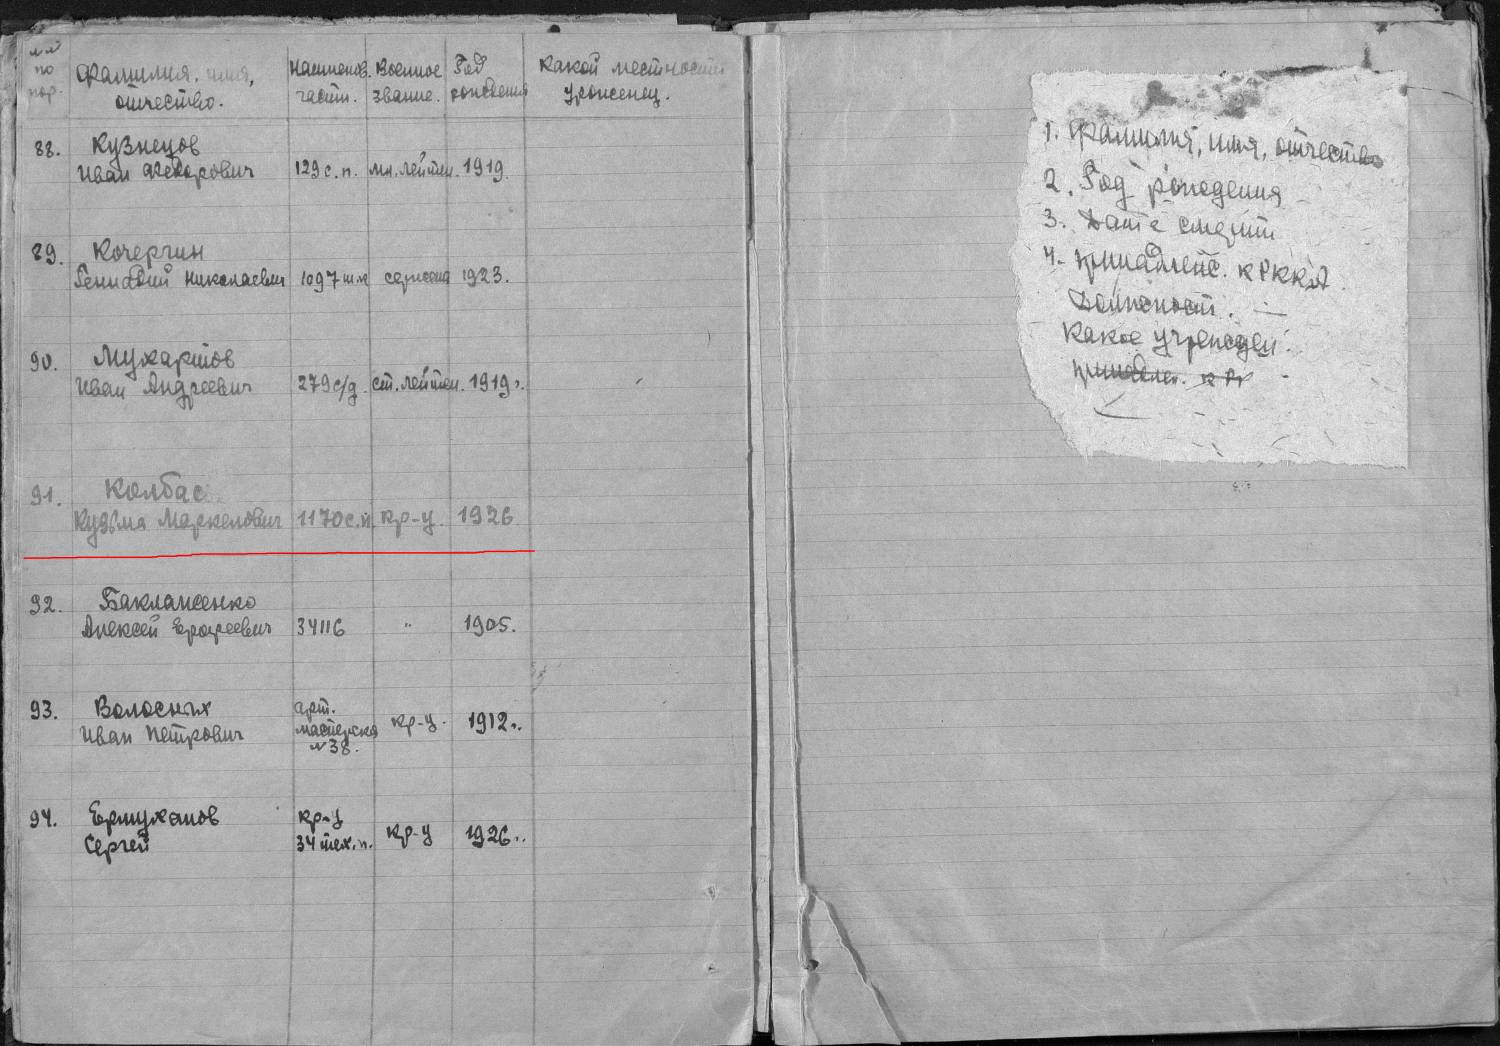 №№ по пор.
Фамилия, имя, отчество.
Наименов. части.
Военное звание.
Год рождения
Какой местности уроженец.
88. Кузнецов
Иван Федорович 129 с.п. мл. лейтен. 1919.
89. Кочергин
Геннадий Николаевич 1097 сержант 1923.
90. Мухартов
Иван Андреевич 279 с/д. ст. лейтен. 1919 г.
91. Колбас
Кузьма Маркелович 1170 с.п. кр-ц. 1926
92. Баклаженко
Алексей 34116 " 1905.
93. Волосных
Иван Петрович арт. мастерска №38. кр-ц. 1912 г.
94. Ермуханов
Сергей кр-ц 34 тех. п. кр-ц 1926 г.
1. Фамилия, имя, отчество
2. Год рождения
3. Дата смерти
4. Принадлежн. к РККА
Должност. —
Какое учрежден.
принадлеж. к Рк